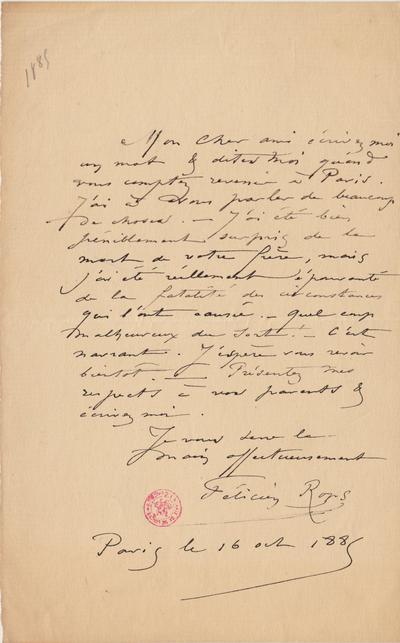 1885
Mon cher ami écrivez moi
un mot & dites moi quand
vous comptez revenir à Paris.
J'ai à vous parler de beaucoup
de choses. — J'ai été bien
péniblement surpris de la
mort de votre frère, mais
j'ai été réellement épouvanté
de la fatalité des circonstances
qui l'ont causée. — Quel coup
malheureux du sort! — C'est
navrant. J'espère vous revoir
bientôt. — Présentez mes
respects à vos parents &
écrivez moi.
Je vous serre la
main affectueusement
Félicien Rops
Paris le 16 oct 1885